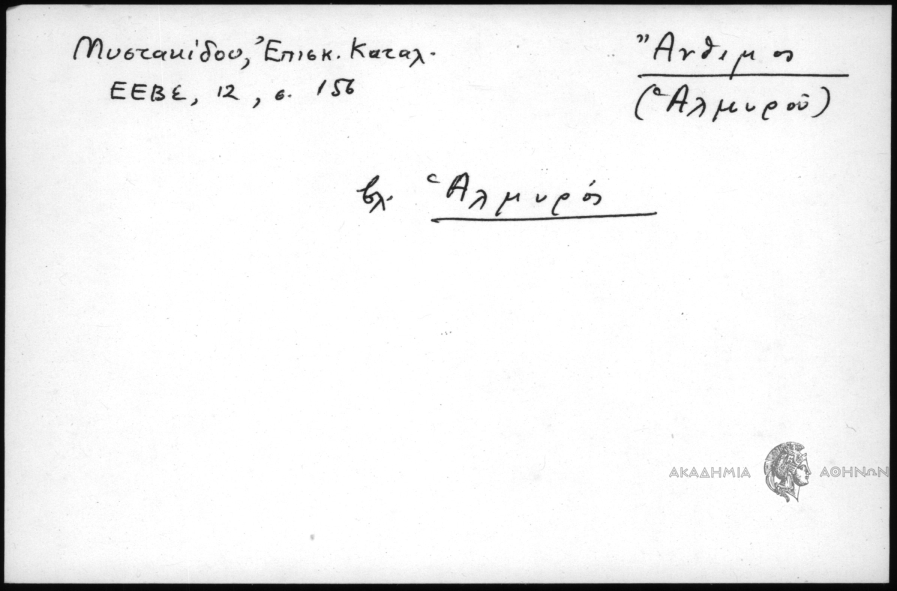 Μυστακίδου, Ἐπισκ. Καταλ.
ΕΕΒΣ, 12, σ. 156
Ἄνθιμος
(Ἁλμυροῦ)
βλ. Ἁλμυρός
ΑΚΑΔΗΜΙΑ ΑΘΗΝΩΝ